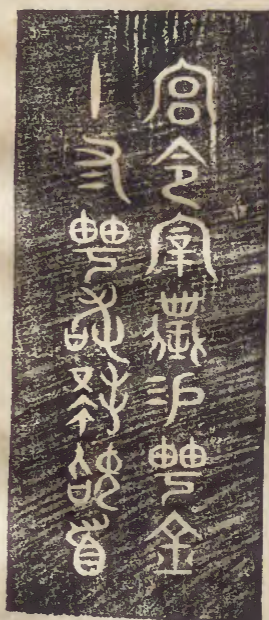 宮令宰僕易甹金
十勻甹敢拜稽首